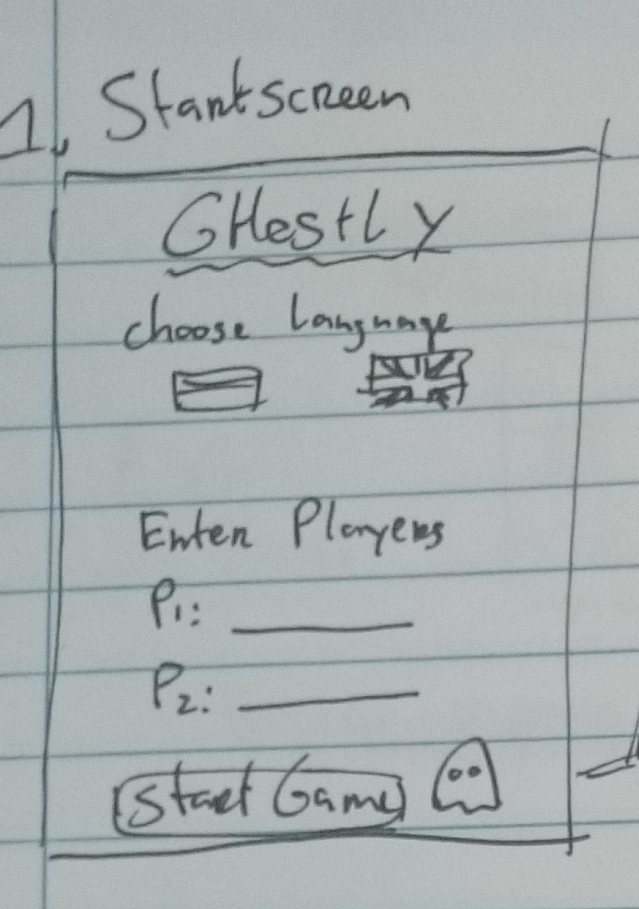 1. Startscreen
GHestly
choose language
Enter Players
P1:
P2:
Start Game